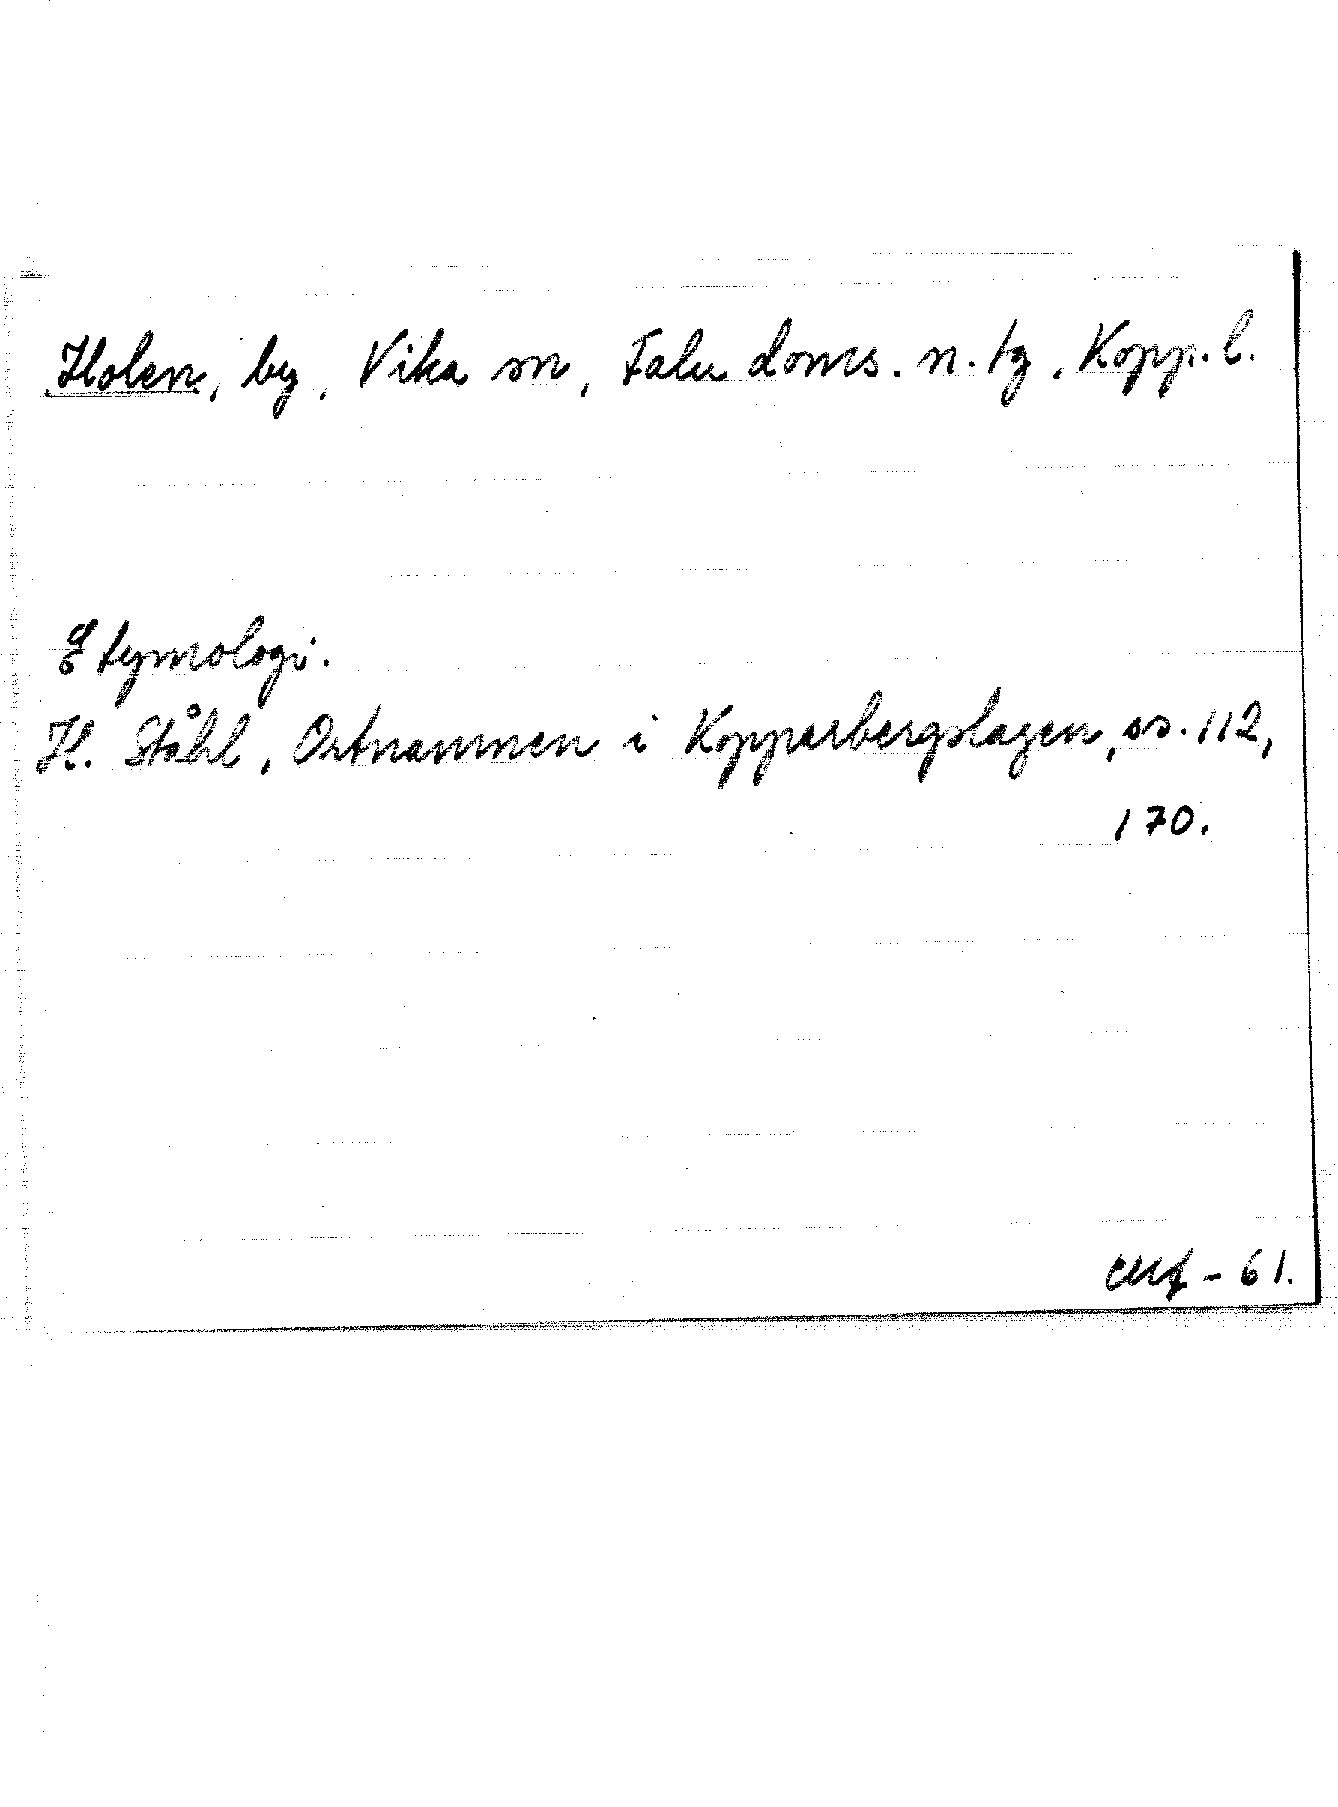 Holen, by, Vika sn, Falu doms. n. tg, Kopp. l.
Etymologi.
H. Ståhl, Ortnamnen i Kopparbergslagen, ss. 112,
170.
- 61.